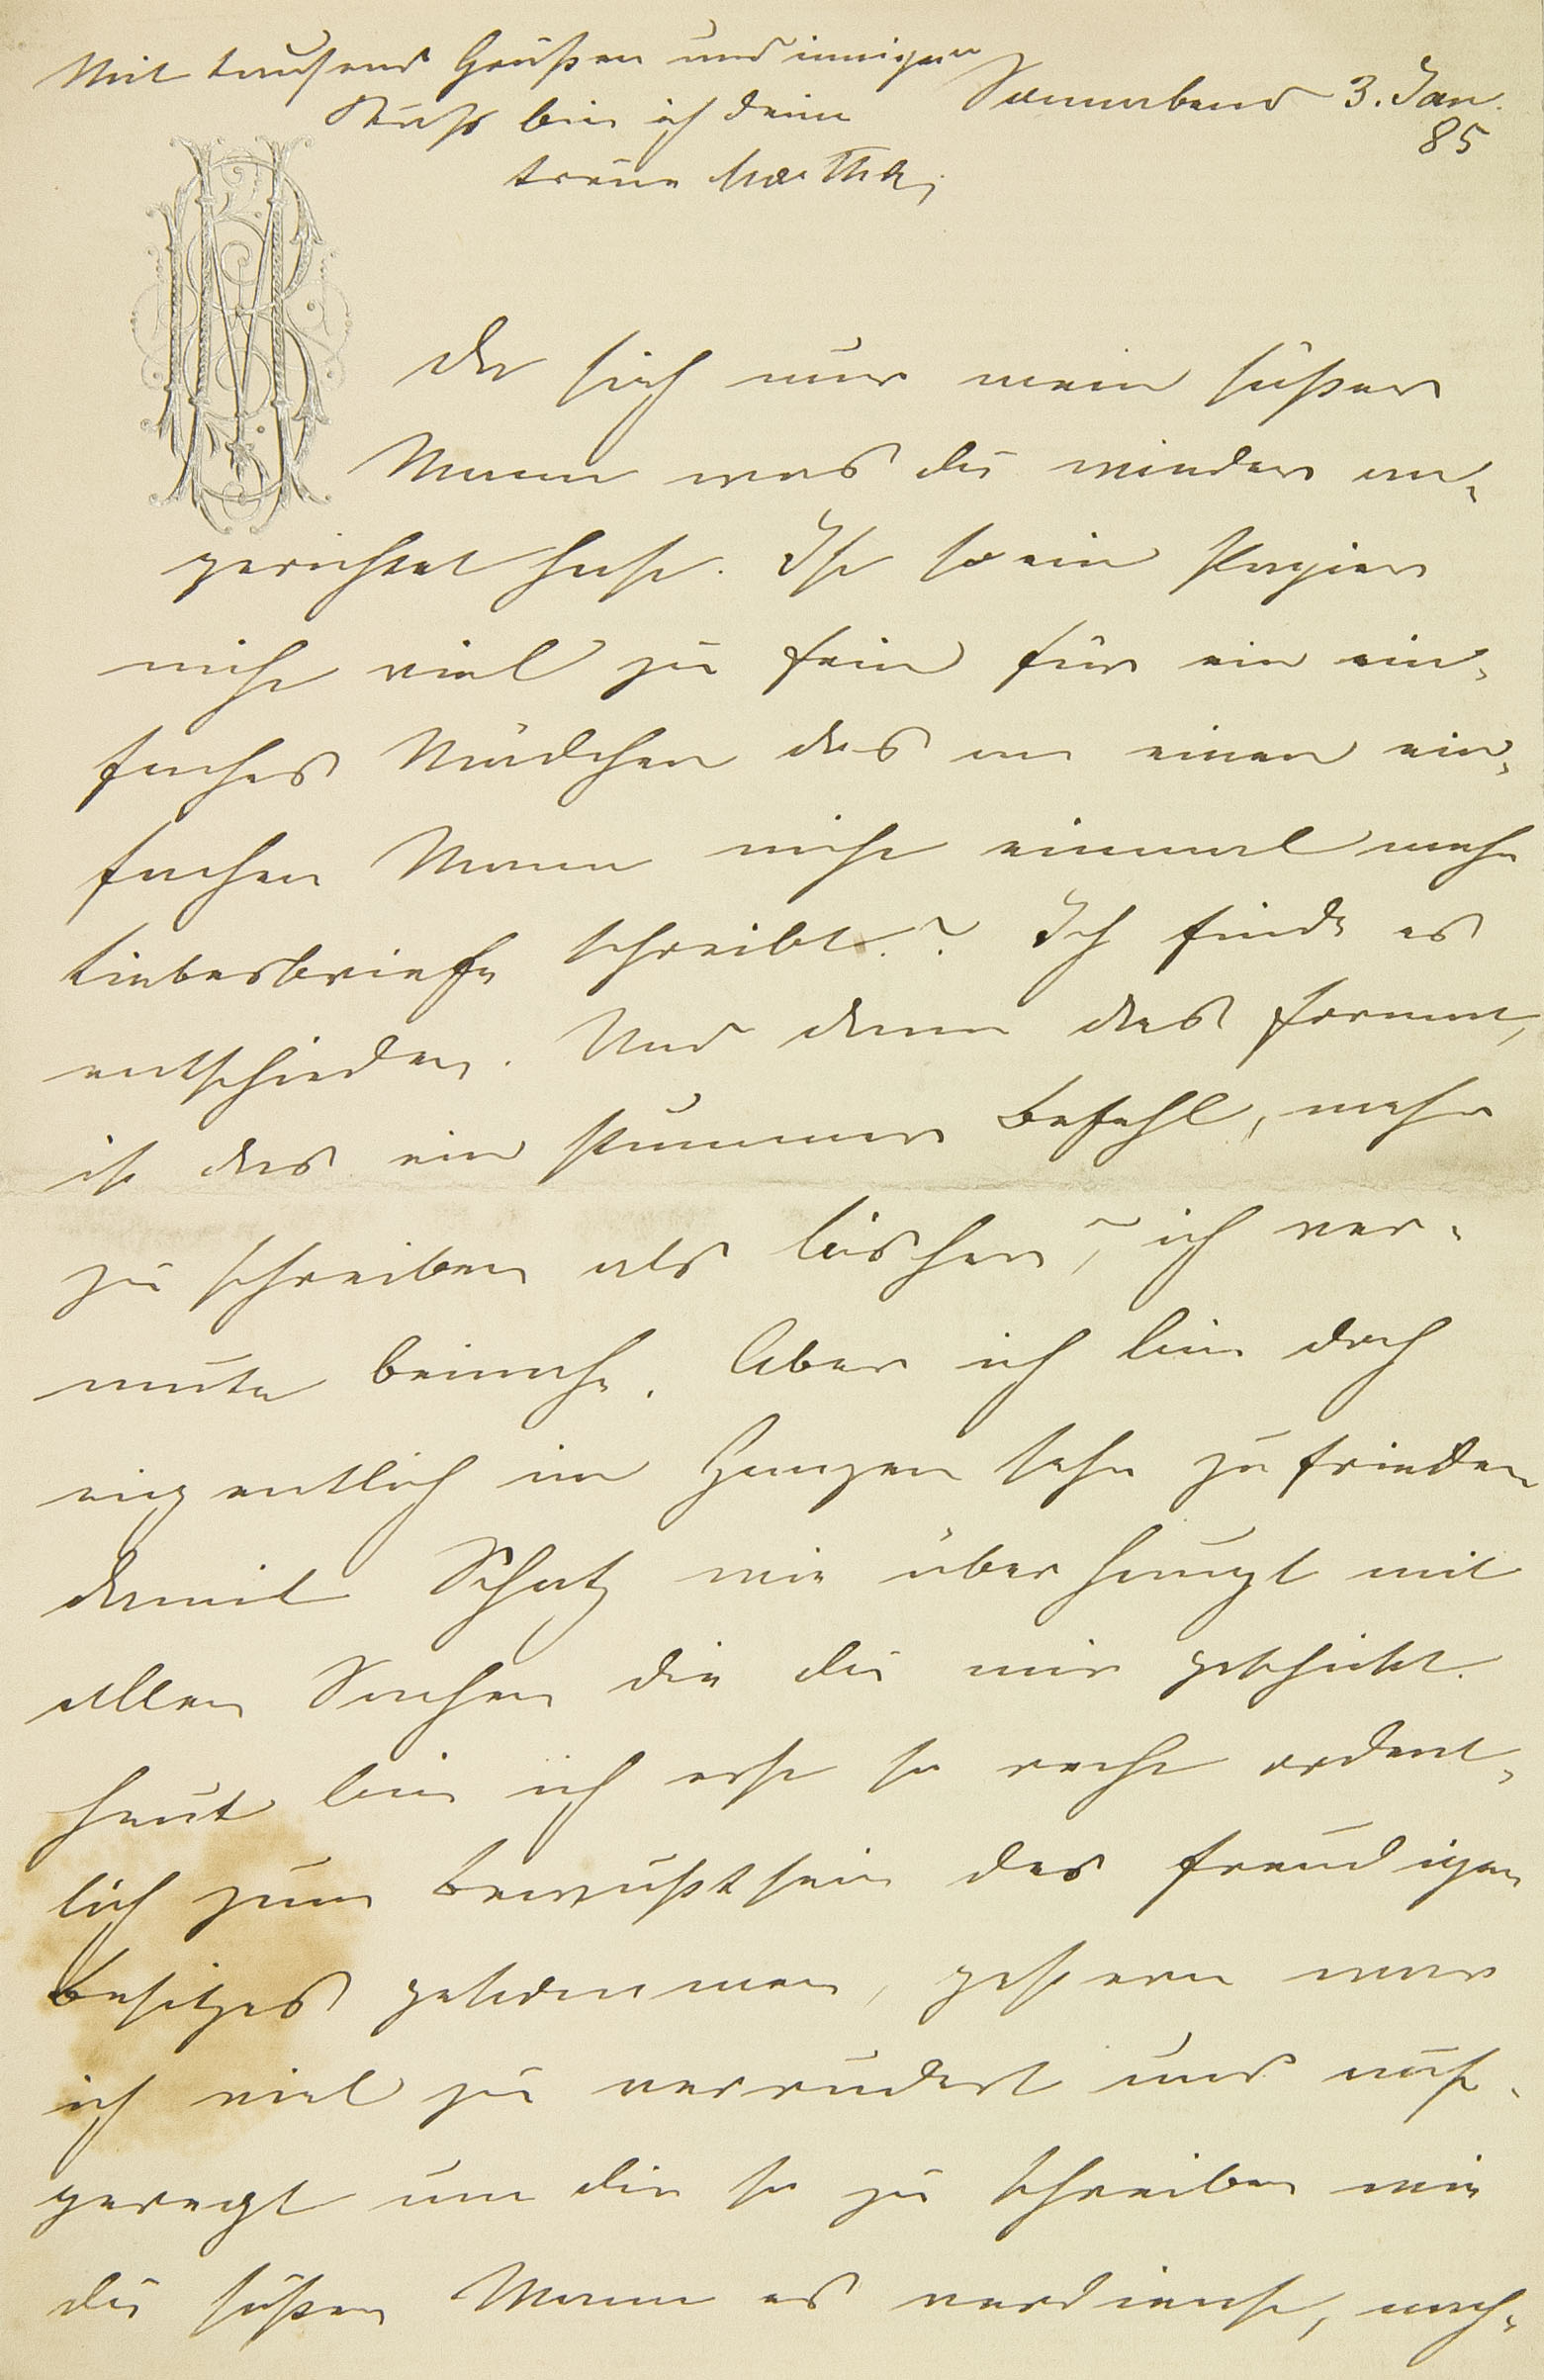 Mit tausend Grüßen und innigem
Kuß bin ich deine
treue Martha.
Sonnabend 3. Jan.
85
MB
Da sieh nur mein süßer
Mann was du wieder an-
gerichtet hast. Ist so ein Papier
nicht viel zu fein für ein ein-
faches Mädchen das an einen ein-
fachen Mann nicht einmal mehr
Liebesbriefe schreibt? Ich finde es
entschieden. Und dann das Format,
ist das ein stummer Befehl, mehr
zu schreiben als bisher? ich ver-
mute beinahe. Aber ich bin doch
eigentlich im Ganzen sehr zufrieden
damit Schatz wie überhaupt mit
allen Sachen die du mir geschickt.
Heut bin ich erst so recht ordent-
lich zum Bewußtsein des freudigen
Besitzes gekommen, gestern war
ich viel zu verrudert und auf-
geregt um dir so zu schreiben wie
du süßer Mann es verdienst, nach-